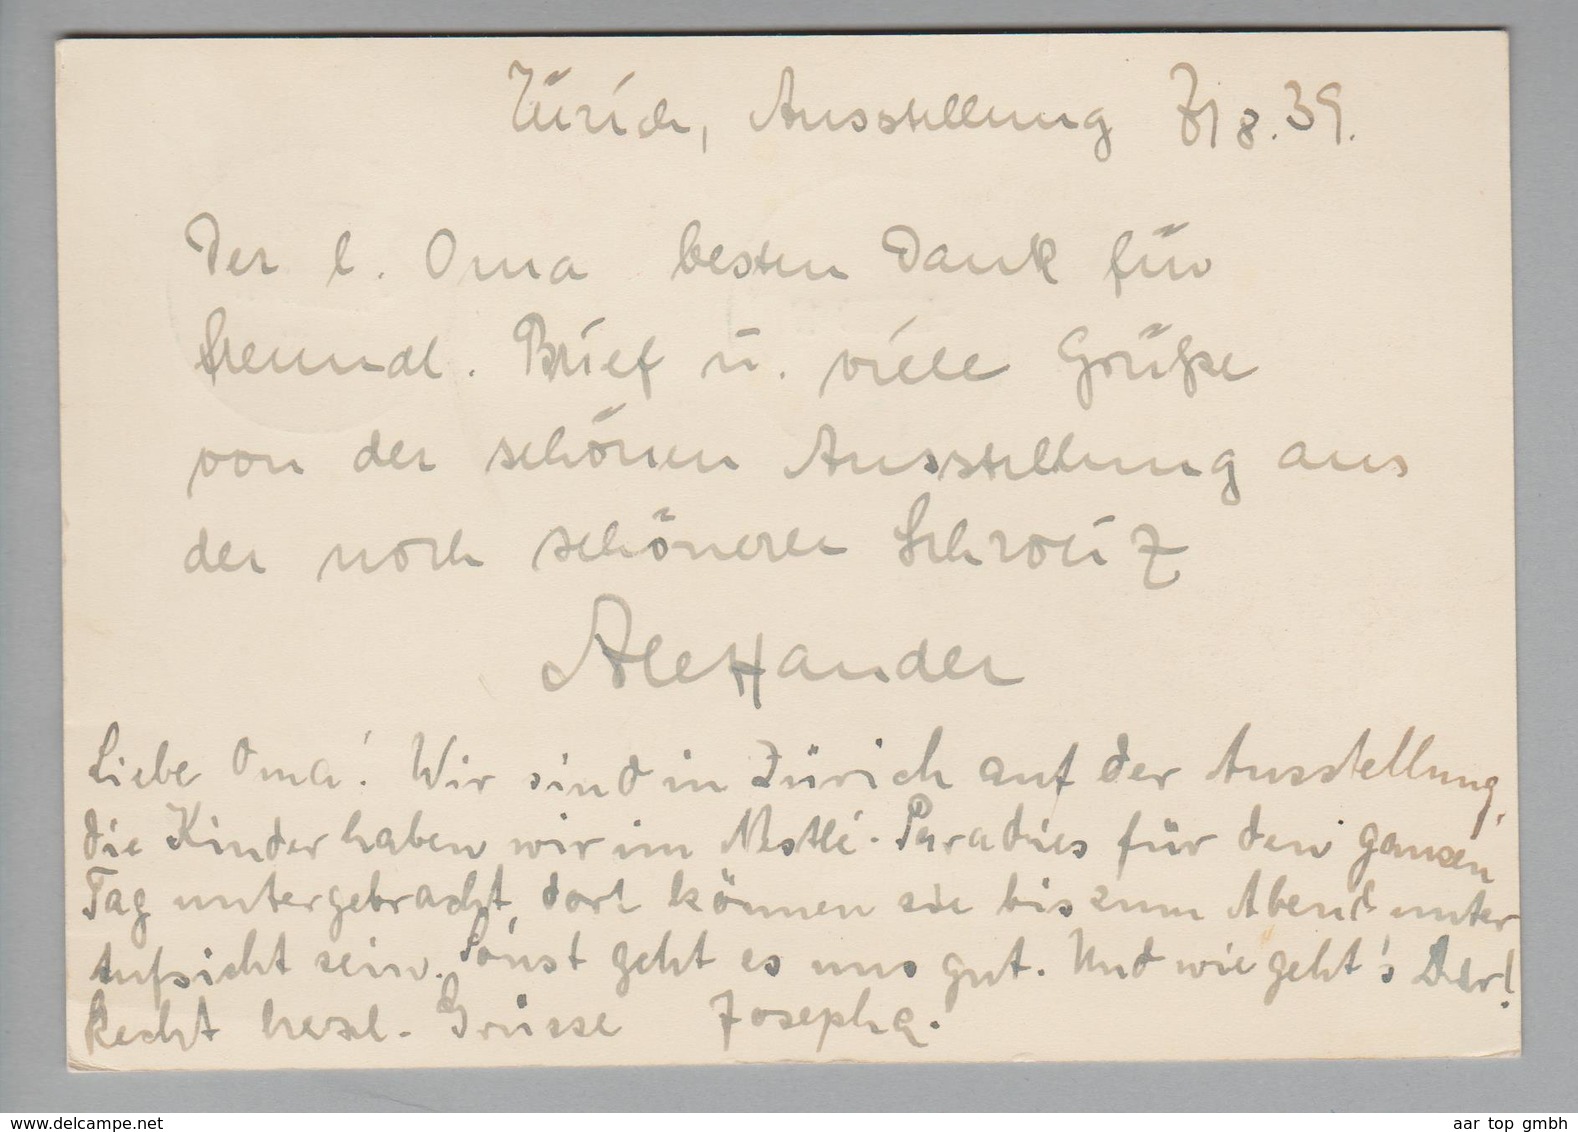 Zürich, Ausstellung 8.39.
Der l. Oma besten Dank für
freundl. Brief u. viele Grüße
von der schönen Ausstellung aus
der noch schöneren Schweiz
Alexander
Liebe Oma! Wir sind in Zürich auf der Ausstellung,
die Kinder haben wir im Nestlé-Paradies für den ganzen
Tag untergebracht, dort können sie bis zum Abend unter
Aufsicht sein. Sonst geht es uns gut. Und wie geht's Dir!
Recht herzl. Grüsse Josepha.
www.delcampe.net
aar top gmbh